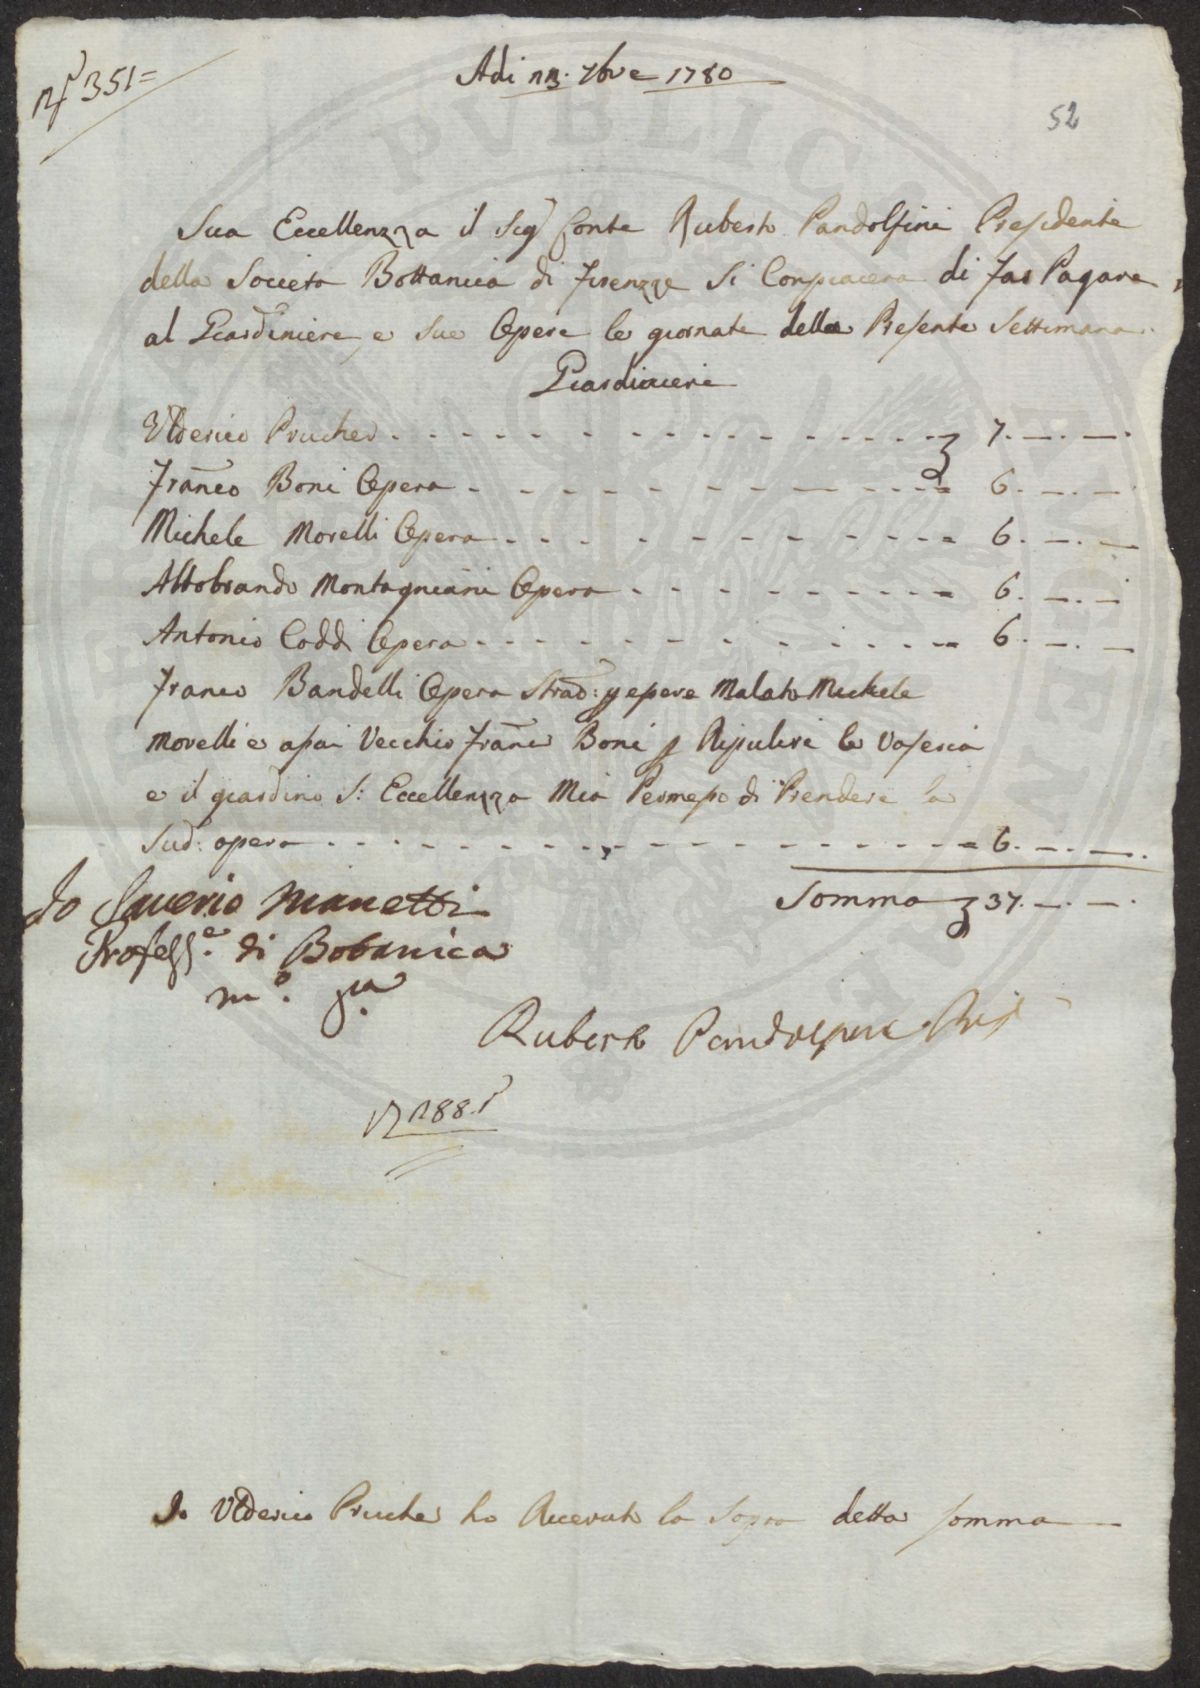 N° 351=
Adi 23. 7bre 1780
52
Sua Eccellenzza il Sig Conte Ruberto Pandolfini Presidente
della Societa Bottanica di Firenzze Si Conpiacera di far Pagare
al Giardiniere e Sue Opere le giornate della Presente Settimana
Giardinieri
Ulderico Prucher - - - - - - - - - - - - - - 7. —. —.
Franco Boni Opera - - - - - - - - - - - = 6. —. —
Michele Morelli Opera - - - - - - - - - = 6. —. —
Aldobrando Montagniani Opera - - - - - - - = 6. —. —
Antonio Coddi Opera - - - - - - - - - = 6. —. —
Franco Bandelli Opera Strad: p esere Malato Michele
Morelli e asai Vecchio Franco Boni p Ripulire la Vaseria
e il giardino S: Eccellenzza Mia Permesso di Prendere la
Sud: opera - - - - - - - - - - - - - = 6. —. —.
Somma 37. —. —.
Io Saverio Manetti
Profess.e di Botanica
m.o p.a
Ruberto Pandolfini Pres
1288
Io Ulderico Prucher ho Riceuto la Sopra detta somma